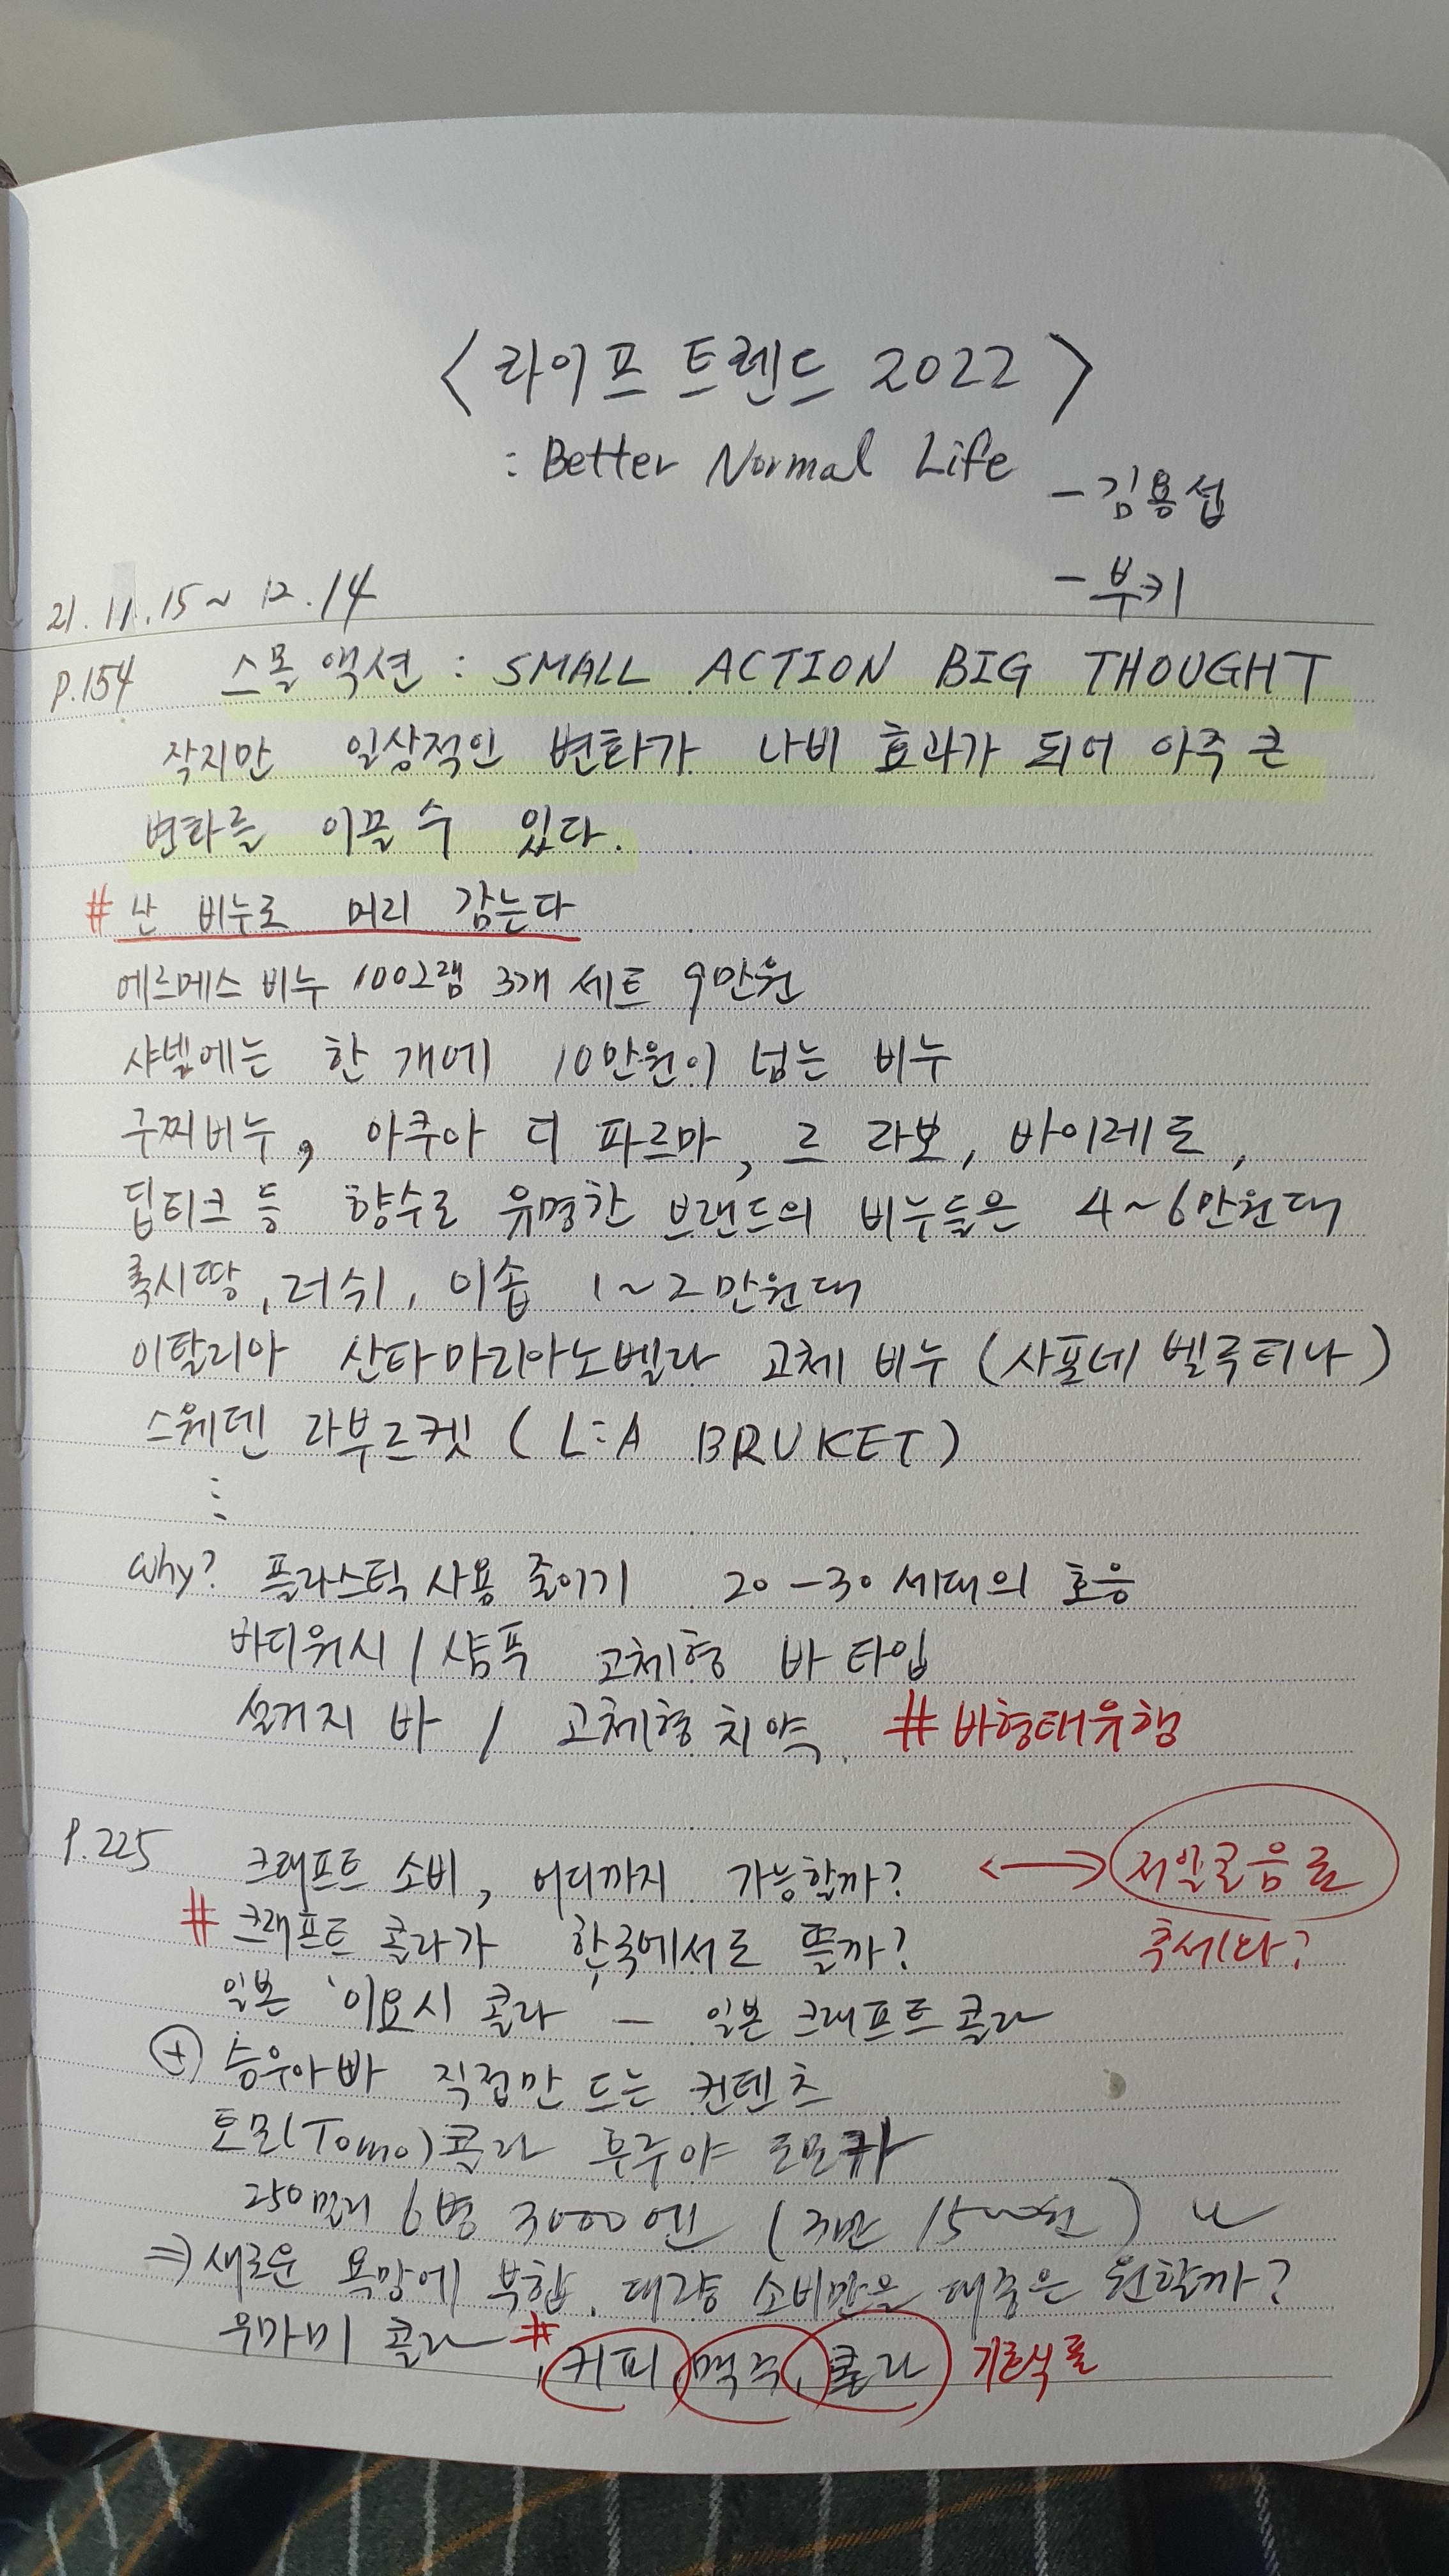 <라이프 트렌드 2022>
: Better Normal Life
- 김용섭
- 부키
21.11.15~12.14
P.154 스몰 액션 : SMALL ACTION BIG THOUGHT
작지만 일상적인 변화가 나비 효과가 되어 아주 큰
변화를 이끌 수 있다.
# 난 비누로 머리 감는다
에르메스 비누 100그램 3개 세트 9만원
샤넬에는 한 개에 10만원이 넘는 비누
구찌비누, 아쿠아 디 파르마, 르 라보, 바이레도,
딥티크 등 향수로 유명한 브랜드의 비누들은 4~6만원대
록시땅, 러쉬, 이솝 1~2만원대
이탈리아 산타마리아노벨라 고체 비누 (사포네 벨루티나)
스웨덴 라부르켓 (L:A BRUKET)
⋮
Why? 플라스틱 사용 줄이기 20-30 세대의 호응
바디워시 / 샴푸 고체형 바 타입
설거지 바 / 고체형 치약 #바형태유행
P.225 크래프트 소비, 어디까지 가능할까? <—> 저알콜음료
# 크래프트 콜라가 한국에서도 뜰까? 추세와?
일본 '이요시 콜라' - 일본 크래프트 콜라
⊕ 승우아빠 직접만드는 컨텐츠
토모(Tomo)콜라 후루야 토모카
250미리 6병 3000엔 (3만 원)
=> 새로운 욕망에 부합. 대량 소비만을 대중은 원할까?
우마미 콜라 # 커피, 맥주, 콜라 기호식품